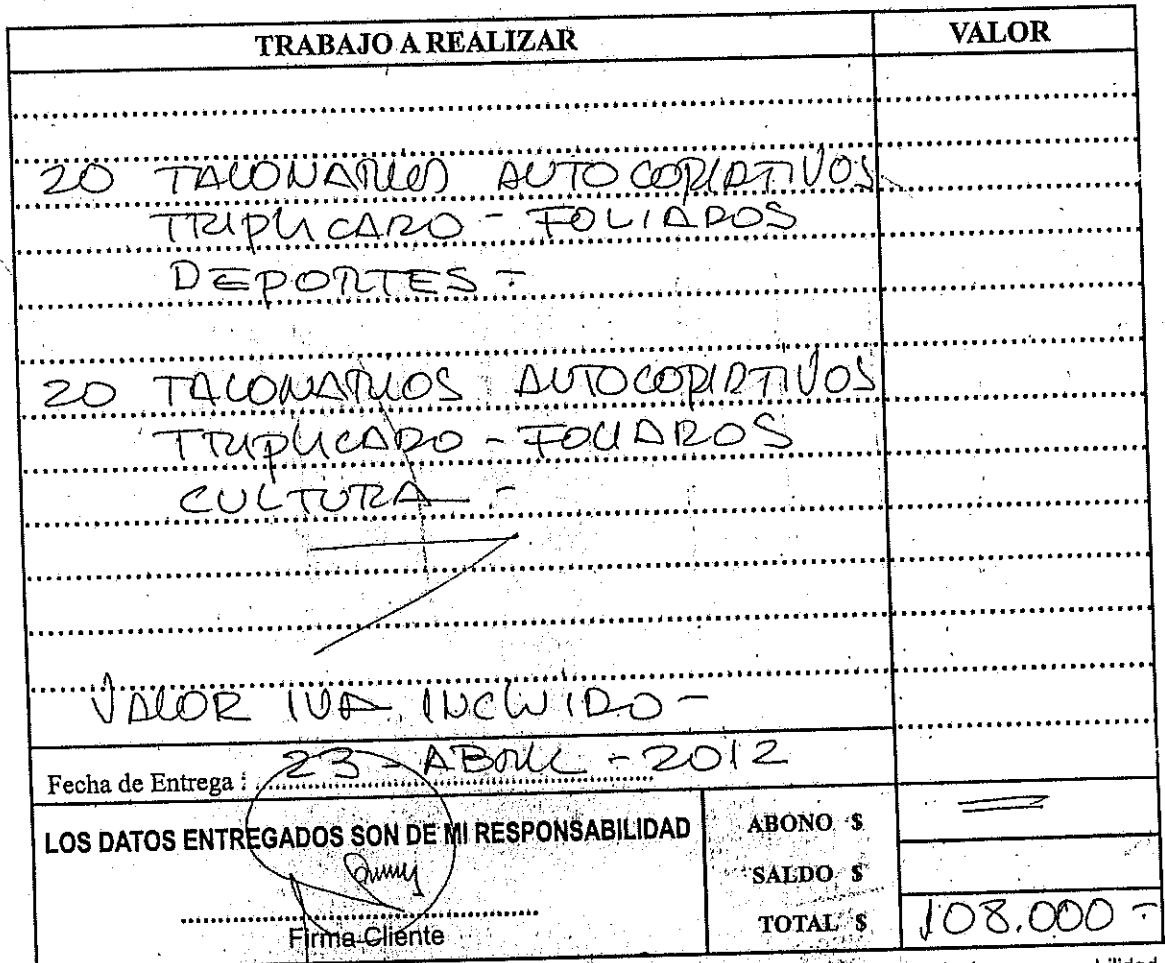 TRABAJO A REALIZAR VALOR
20 TALONARIOS AUTOCOPIATIVOS
TRIPLICADO - FOLIADOS
DEPORTES -
20 TALONARIOS AUTOCOPIATIVOS
TRIPLICADO - FOLIADOS
CULTURA -
VALOR IVA INCLUIDO -
Fecha de Entrega : 23 - ABRIL - 2012
LOS DATOS ENTREGADOS SON DE MI RESPONSABILIDAD
Firma Cliente
ABONO $ =
SALDO $
TOTAL $ 108.000 -